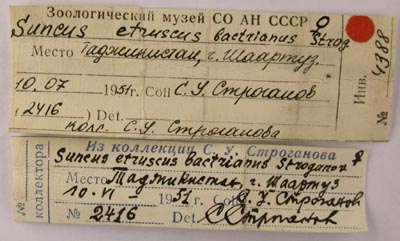 Зоологический музей СО АН СССР ♀
Suncus etruscus bactrianus Strog.
Место Таджикистан, г. Шаартуз.
10.07 1951г. Coll С. У. Строганов
(2416) Det.
колл. С. У. Строганова
Инв. № 4388
Из коллекции С. У. Строганова
Suncus etruscus bactrianus Stroganov ♀
Место Таджикистан, г. Шаартуз
10-VI 1951 С. У. Строганов
№ 2416 Det. С. Строганов
№ коллектора